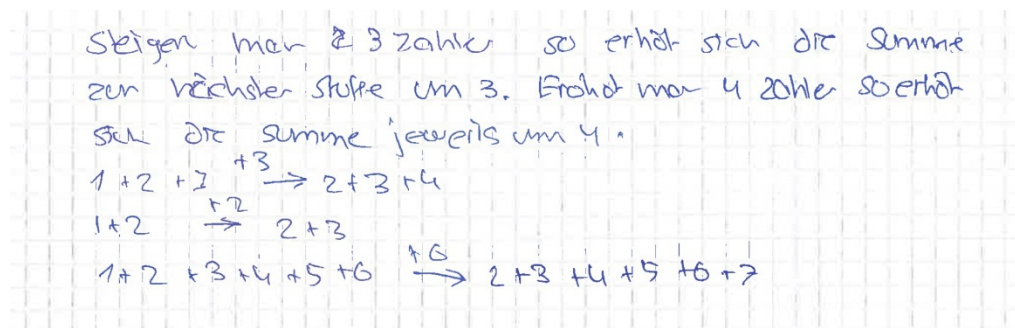 Steigen man 3 Zahlen so erhöt sich die Summe
zur nächsten Stuffe um 3. Erohöt man 4 Zahlen so erhöt
sich die Summe jeweils um 4.
1 + 2 + 3 +3→ 2 + 3 + 4
1 + 2 +2→ 2 + 3
1 + 2 + 3 + 4 + 5 + 6 +6→ 2 + 3 + 4 + 5 + 6 + 7